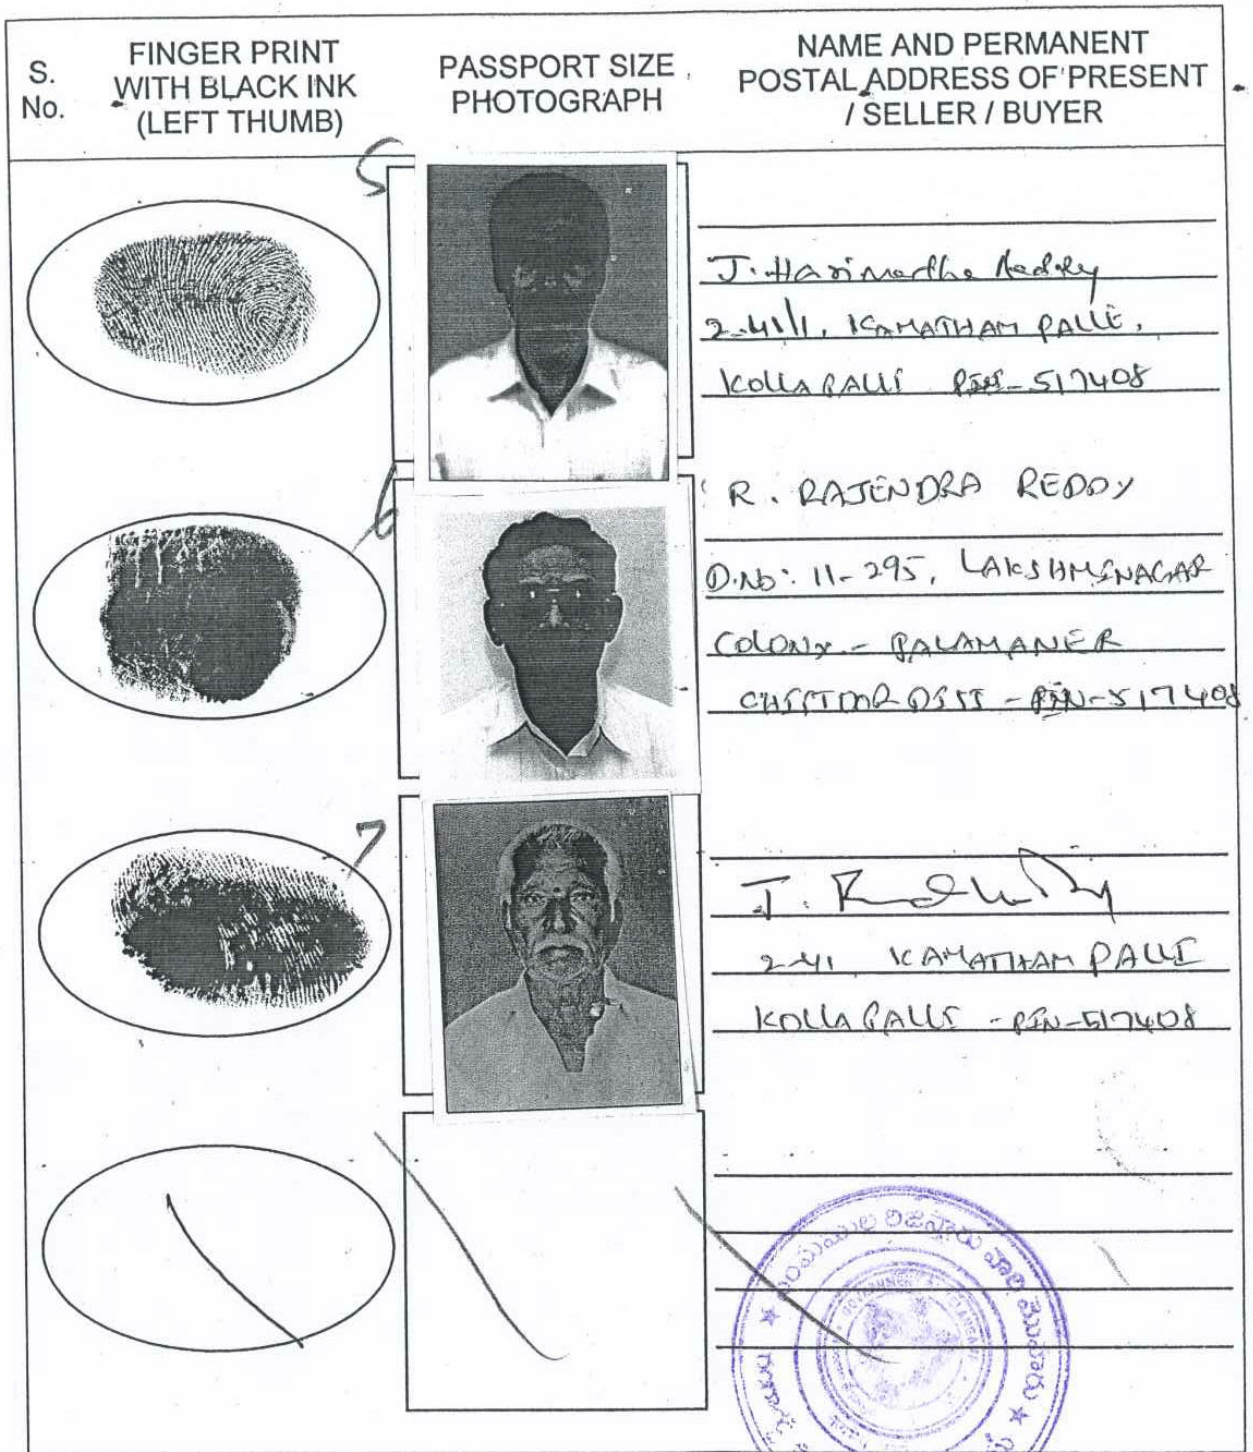 S. No.
FINGER PRINT WITH BLACK INK (LEFT THUMB)
PASSPORT SIZE PHOTOGRAPH
NAME AND PERMANENT POSTAL ADDRESS OF PRESENT / SELLER / BUYER
5
J. Reddy
2-41/1, KAMATHAM PALLE,
KOLLA PALLI PIN-517408
6
R. RAJENDRA REDDY
D.No: 11-295, LAKSHMINAGAR
COLONY - PALAMANER
CHITTOOR DIST - PIN-517408
7
2-41, KAMATHAM PALLI
KOLLA PALLI - PIN-517408
GOVERNMENT